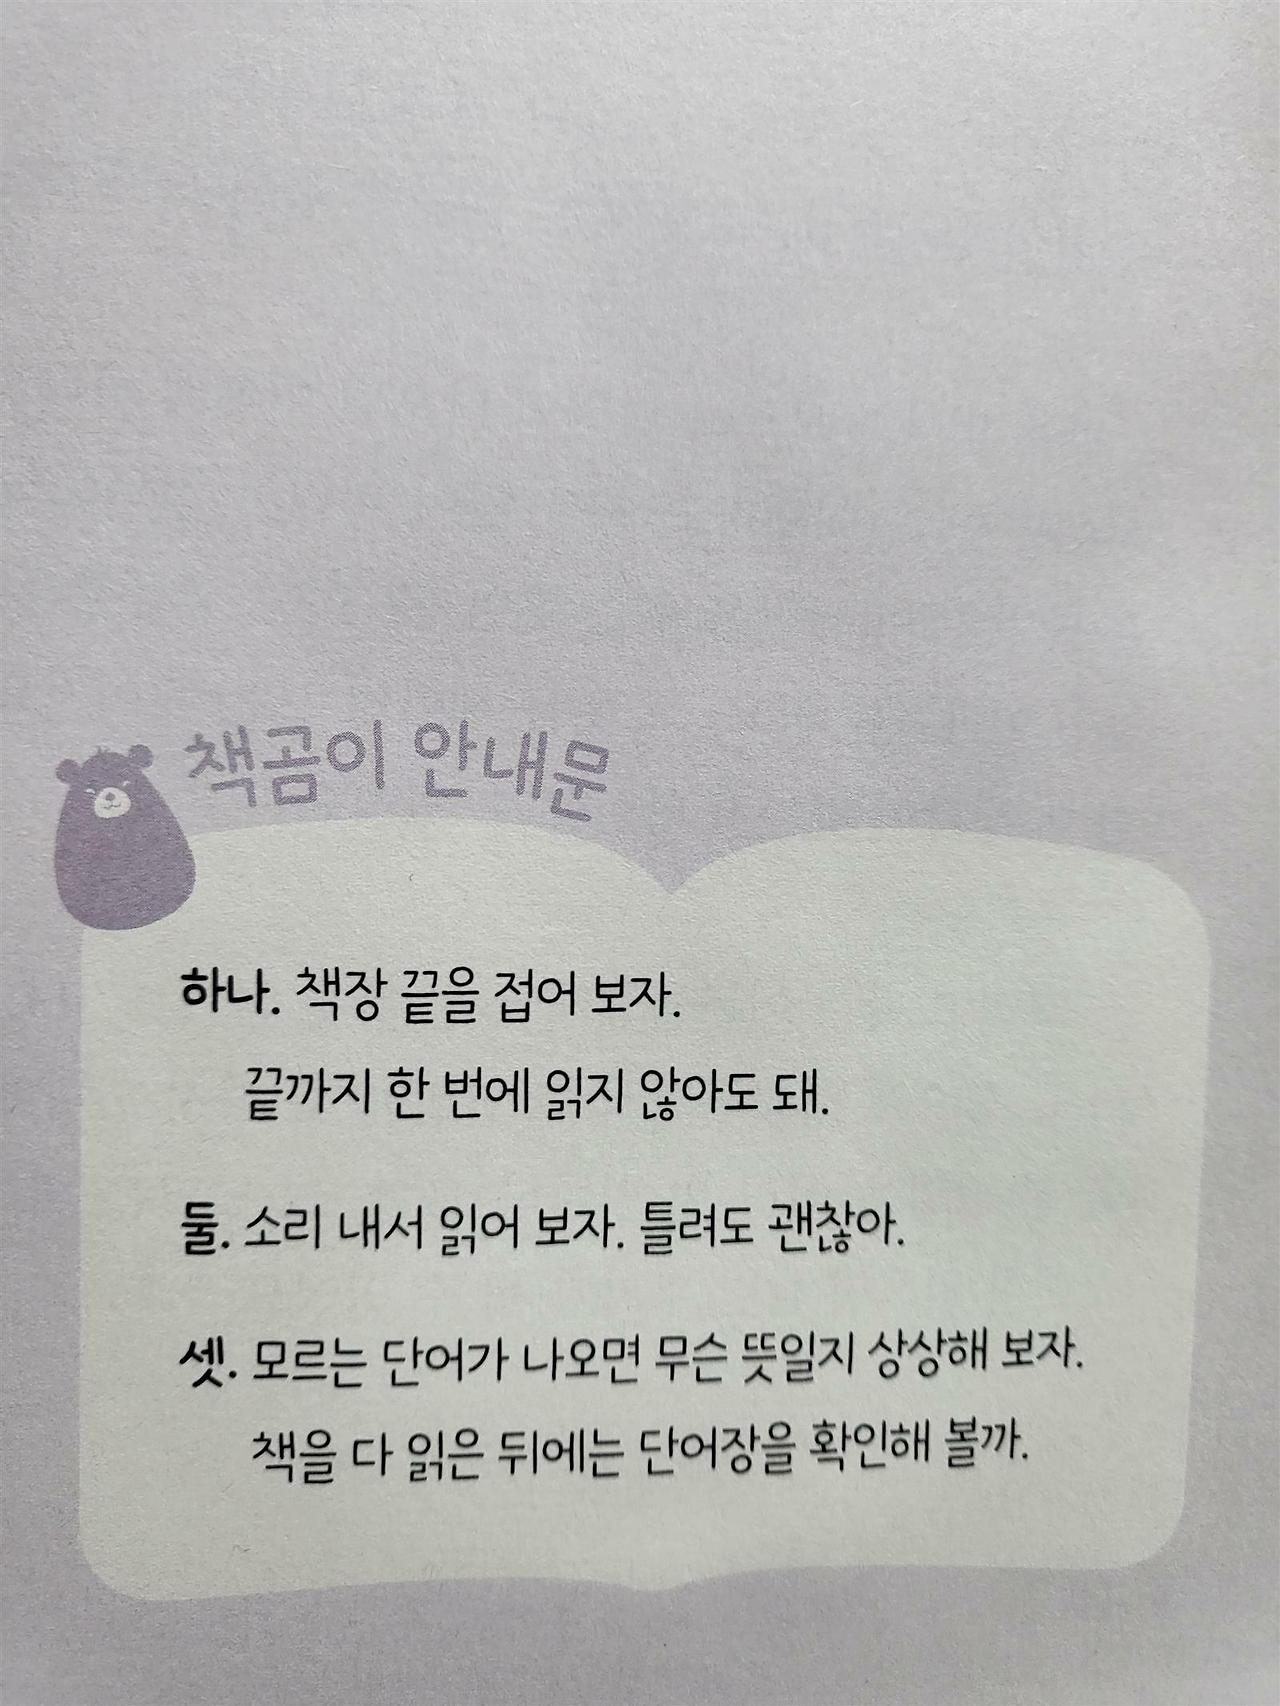 책곰이 안내문
하나. 책장 끝을 접어 보자.
끝까지 한 번에 읽지 않아도 돼.
둘. 소리 내서 읽어 보자. 틀려도 괜찮아.
셋. 모르는 단어가 나오면 무슨 뜻일지 상상해 보자.
책을 다 읽은 뒤에는 단어장을 확인해 볼까.